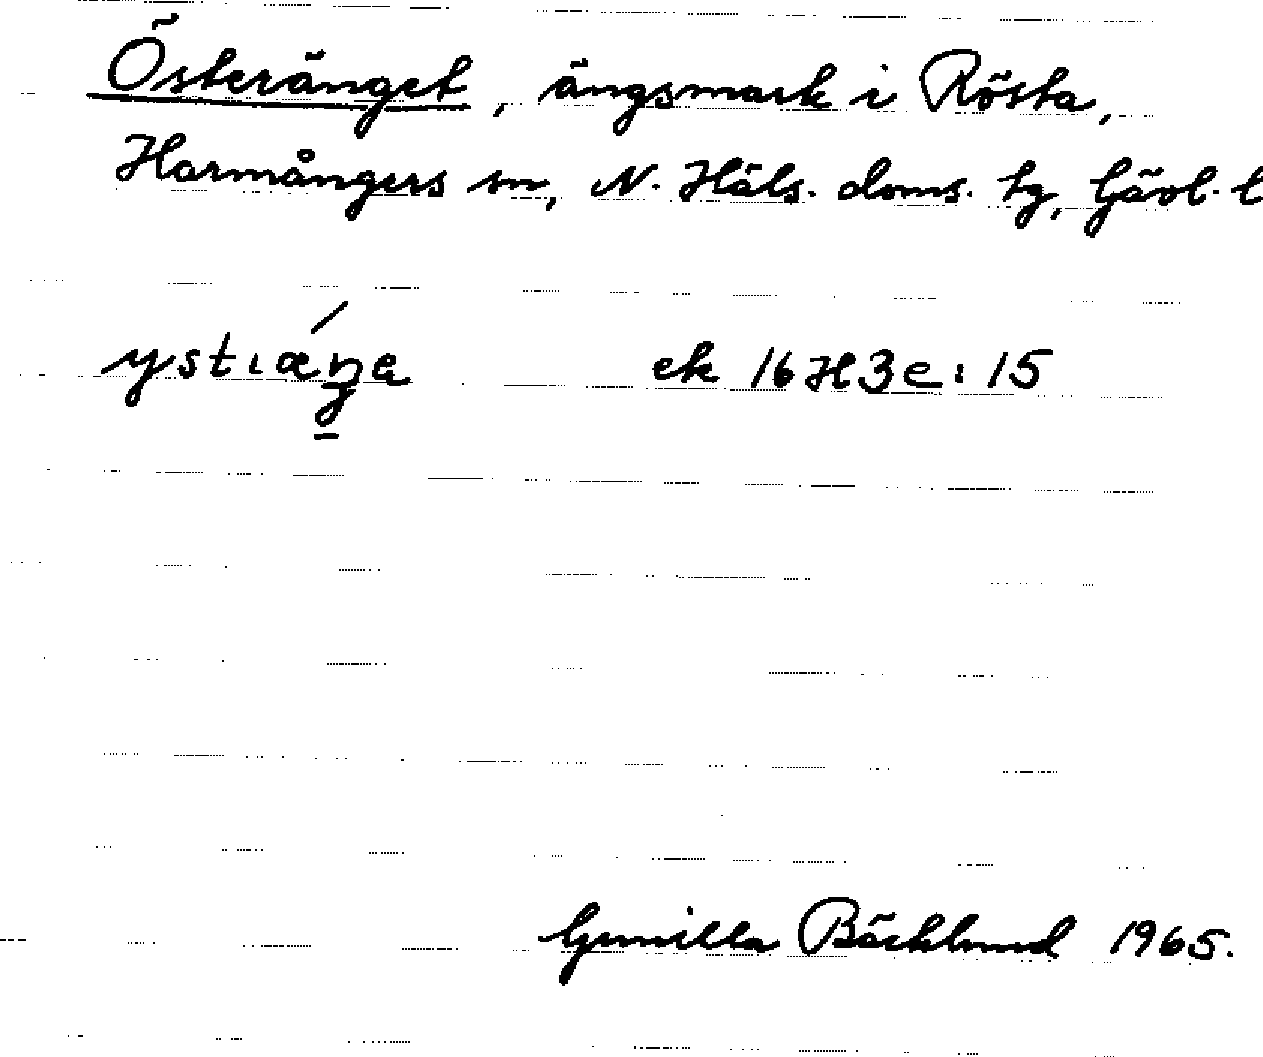 Österänget, ängsmark i Rösta,
Harmångers sn, N. Häls. doms. tg, Gävl. l
ek 16H3e:15
Gunilla Bäcklund 1965.